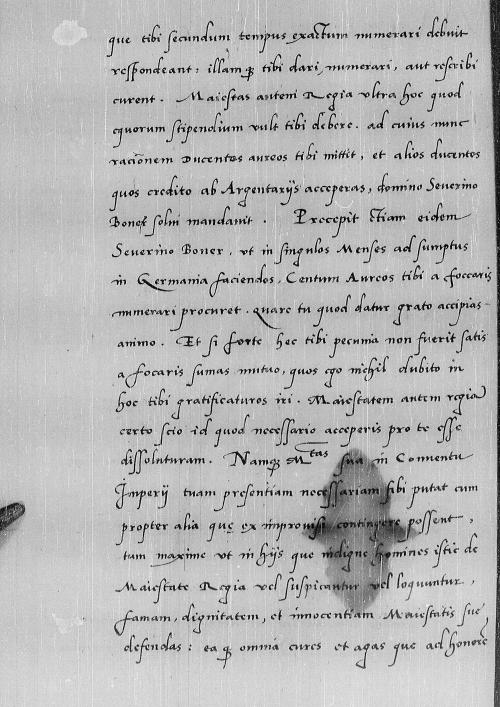 que tibi secundum tempus exactum numerari debuit
respondeant: illamq; tibi dari, numerari, aut rescribi
curent. Maiestas autem Regia ultra hoc quod
equorum stipendium vult tibi debere. ad cuius nunc
racionem Ducentos aureos tibi mittit, et alios ducentos
quos credito ab Argentarijs acceperas, domino Severino
Boner solui mandauit. Precepit Etiam eidem
Severino Boner, vt in singulos Menses ad sumptus
in Germania faciendos, Centum Aureos tibi a foccaris
numerari procuret. quare tu quod datur grato accipias
animo. Et si forte hec tibi pecunia non fuerit satis
a focaris sumas mutuo, quos ego nichil dubito in
hoc tibi gratificaturos iri. Maiestatem autem regia
certo scio id quod necessario acceperis pro te esse
dissoluturam. Namq; Mtas sua in Conuentu
Imperij tuam presentiam necessariam sibi putat cum
propter alia que ex improviso contingere possent,
tum maxime vt in hijs que indigne homines istic de
Maiestate Regia vel suspicantur vel loquuntur,
famam, dignitatem, et innocentiam Maiestatis sue
defendas: ea q; omnia cures et agas que ad honore